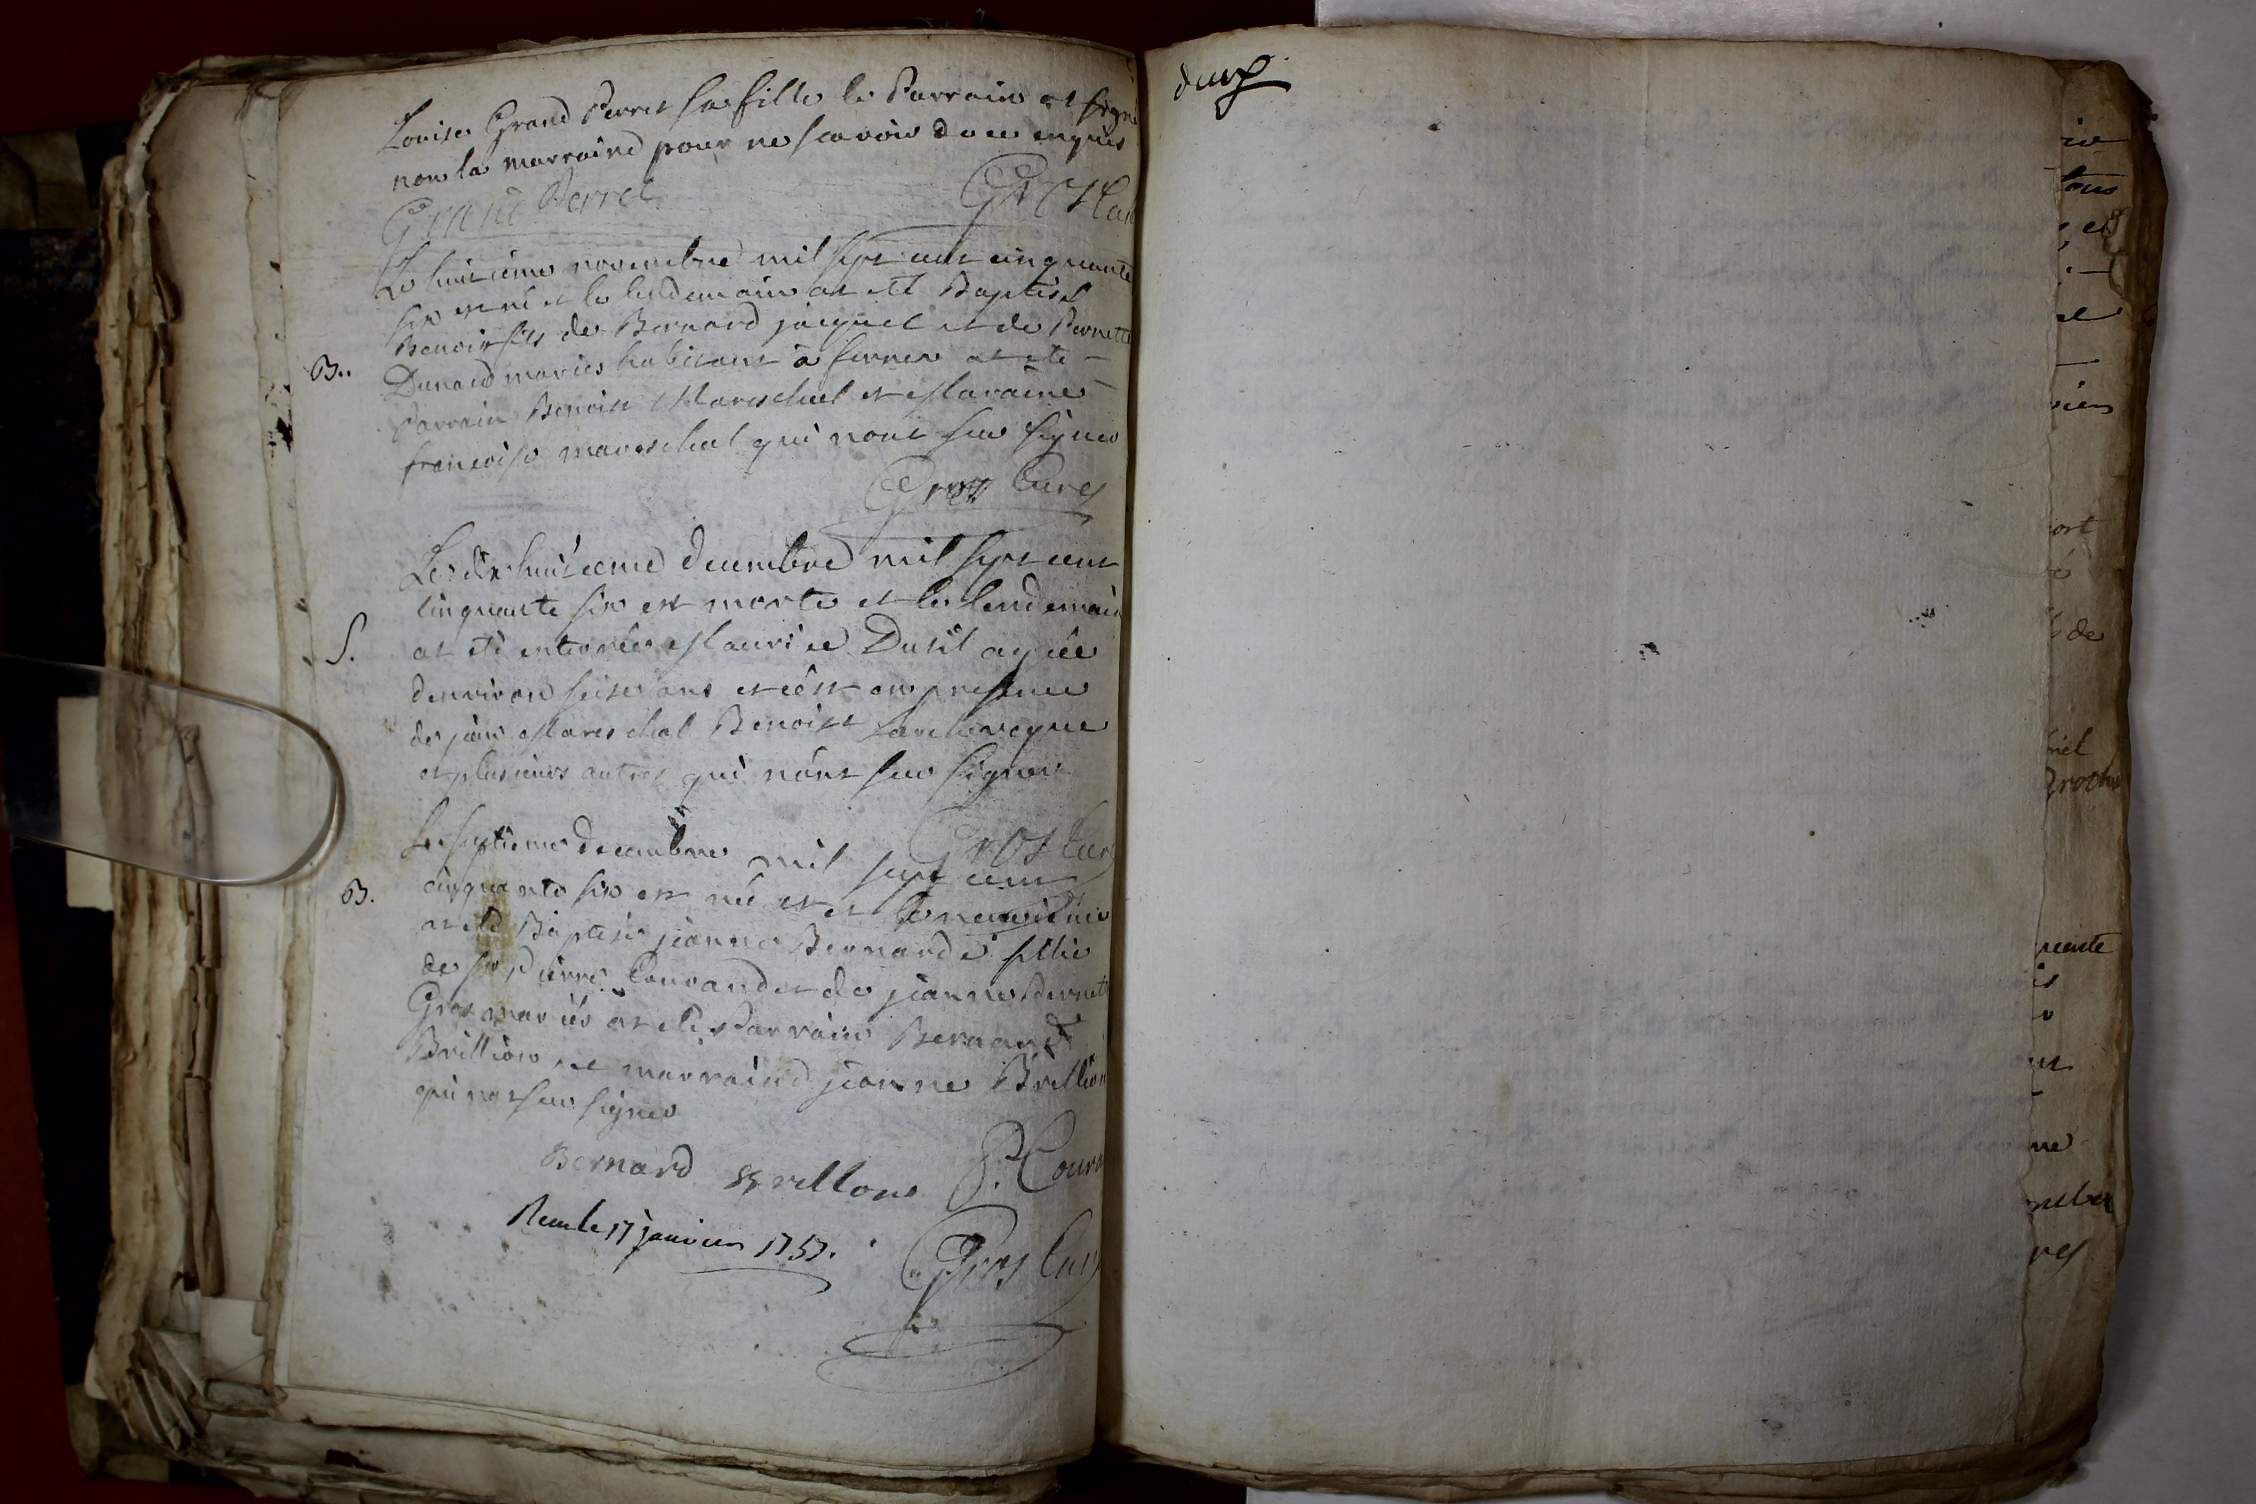 Louise Grand Perret sa fille le Parrain at signé
non la marraine pour ne scavoir de ce enquis
Grand Perret Gros Curé
Le huitieme novembre mil sept cent cinquante
six est né et le lendemain at eté Baptisé
B.. Benoit fils de Bernard jaquet et de Pernette
Dunand mariés habitant à at eté
Parrain Benoist Mareschal et Maraine
francoise mareschal qui nont seu signer
Gros Curé
Le dix huitieme decembre mil sept cent
cinquante six est morte et le lendemain
S. at eté enterrée Maurice Dutil agée
denviron seise ans et cêst en presence
de jean Mareschal Benoist
et plusieurs autres qui nont seu signer
Gros Curé
Le septieme decembre mil sept cent
B. cinquante six est née et le neuvieme
at eté Baptisée jeanne Bernarde fillie
de Sr Pierre Courand et de jeanne Pernette
Gros mariés at eté Parrain Bernard
Brillion et marraine jeanne Brillion
qui nat seu signer
Bernard Brillion P. Cour
Reçu le 17 janvier 1757. Gros Curé
deux